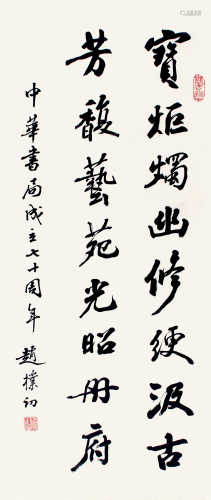 寶炬燭幽修綆汲古
芳馥藝苑光昭册府
中華書局成立七十周年
趙樸初